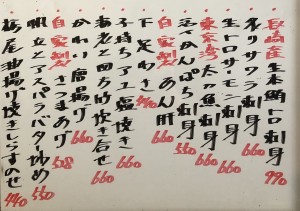 長崎産生本鮪トロ刺身 990
生サクラマス刺身 660
生トロサーモン刺身 660
東京湾太刀魚刺身 660
活かんぱち刺身 550
自家製あん肝 660
下足わさ 440
子持ちアユ塩焼き 660
海老と四方竹炊き合せ 660
かわり信田揚げ 660
自家製さつまあげ 528
帆立とアスパラバター炒め 550
栃尾油揚げ焼きしらすのせ 440